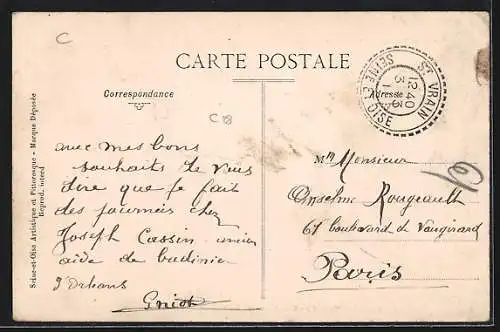 C
CARTE POSTALE
Correspondance
Adresse
C 18
ST VRAIN
12 40
3
SEINE ET OISE
Seine-et-Oise Artistique et Pittoresque - Marque Déposée
Reprod. interd
avec mes bons
souhaits de vous
dire que je fait
des journeis chez
Joseph Cassin
aide de
J Orleans
M Monsieur
Anselme Rougeault
61 boulevard de Vaugirard
Paris
61